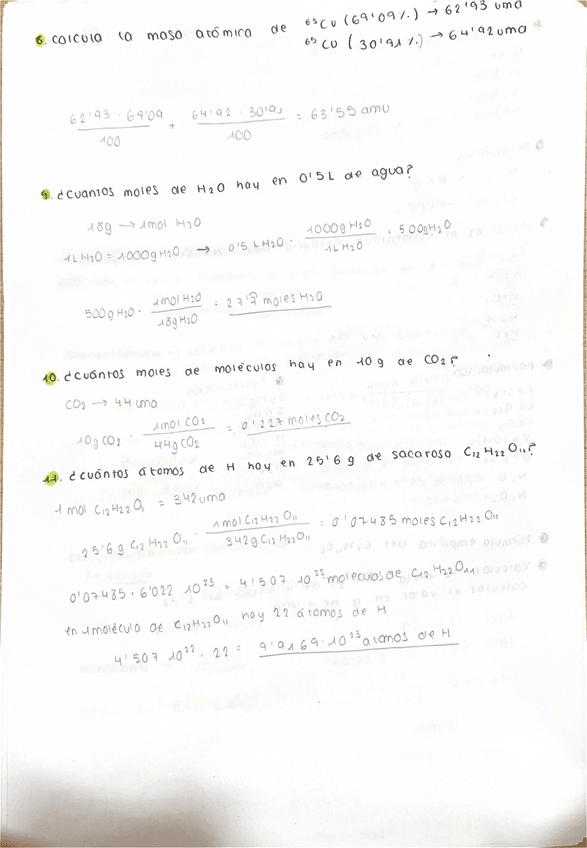 8. calcula la masa atómica de ⁶³Cu (69'09%) → 62'93 uma
⁶⁵Cu (30'91%) → 64'92 uma
62'93 · 69'09 / 100 + 64'92 · 30'91 / 100 = 63'55 amu
9. ¿cuantos moles de H2O hay en 0'5L de agua?
18g → 1mol H2O
1L H2O = 1000g H2O → 0'5 L H2O · 1000g H2O / 1L H2O = 500g H2O
500g H2O · 1mol H2O / 18g H2O = 27'7 moles H2O
10. ¿cuántos moles de moléculas hay en 10 g de CO2?
CO2 → 44 uma
10g CO2 · 1mol CO2 / 44g CO2 = 0'227 moles CO2
11. ¿cuántos átomos de H hay en 25'6 g de sacarosa C12H22O11?
1 mol C12H22O11 = 342 uma
25'6 g C12H22O11 · 1mol C12H22O11 / 342g C12H22O11 = 0'07485 moles C12H22O11
0'07485 · 6'022 10²³ = 4'507 10²² moléculas de C12H22O11
en 1 molécula de C12H22O11 hay 22 átomos de H
4'507 10²² · 22 = 9'9169 · 10²³ atomos de H